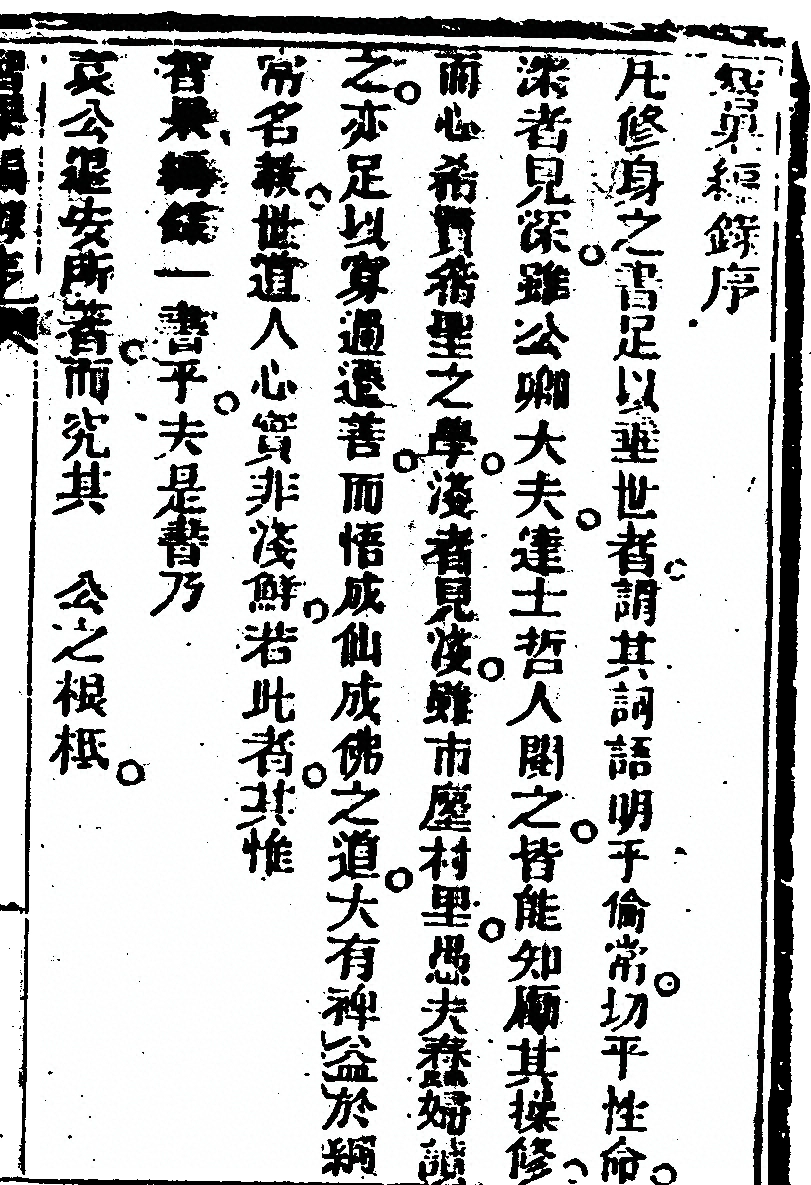 智果編錄序
凡修身之書足以垂世者謂其詞語明乎倫常切乎性命
深者見深雖公卿大夫達士哲人閱之皆能知勵其操修
而心希賢希聖之學淺者見淺雖市廛村里愚夫蠢婦讀
之亦足以寡過遷善而悟成仙成佛之道大有裨益於綱
常名教世道人心實非淺鮮若此者其惟
智果編錄一書乎夫是書乃
袁公退安所著而究其 公之根柢
智果編錄序